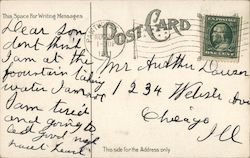 This Space For Writing Messages
POST CARD
Dear Son
dont think
I am at the
fountain taking
water I am
I am tired
and going to
bed good night
sweet heart
Mr Arthur Dawson
1234 Webster Ave
Chicago
Ill
This side for the Address only